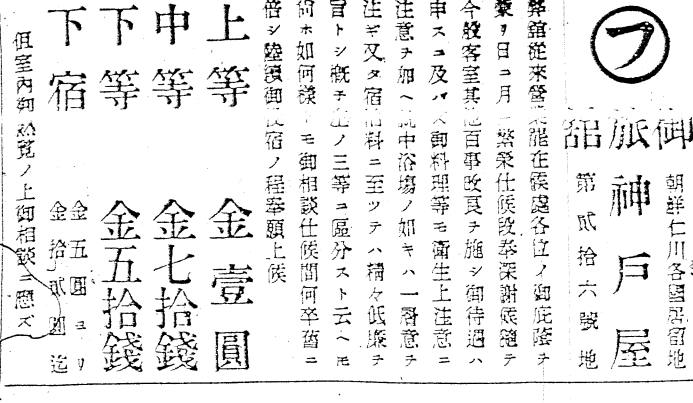 フ
朝鮮仁川各國居留地
御旅舘
神戸屋
第貳拾六號地
弊舘從來營業罷在候處各位ノ御庇蔭ヲ
蒙リ日ニ月ニ繁榮仕候段奉深謝候隨テ
今般客室其他百事改良ヲ施シ御待遇ハ
申スニ及バズ御料理等モ衛生上注意ニ
注意ヲ加ヘ就中浴塲ノ如キハ一層意ヲ
注ギ又タ宿泊料ニ至ツテハ精々低廉ヲ
旨トシ概子左ノ三等ニ區分スト云ヘモ
何ホ如何樣ニモ御相談仕候間何卒舊ニ
倍シ陸續御投宿ノ程奉願上候
上等 金壹圓
中等 金七拾錢
下等 金五拾錢
下宿 金五圓ヨリ
金拾貳圓迄
但室內御縱覧ノ上御相談ニ應ズ